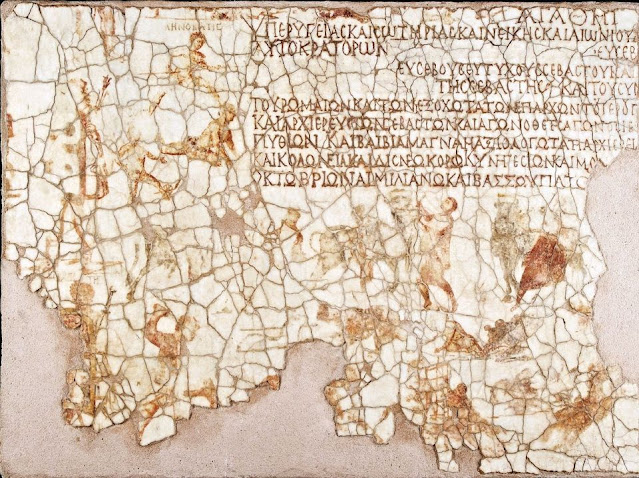 ΑΓΑΘΗΙ
ΥΠΕΡΥΓΕΙΑΣΚΑΙΣΩΤΗΡΙΑΣΚΑΙΝΕΙΚΗΣΚΑΙΑΙΩΝΙΟΥ
ΑΥΤΟΚΡΑΤΟΡΩΝ ΕΥΣΕΒ
ΕΥΣΕΒΟΥΣΕΥΤΥΧΟΥΣΣΕΒΑΣΤΟΥΚΑΙ
ΤΗΣΣΕΒΑΣΤΗΣ ΚΑΙΤΟΥΣΥ
ΤΟΥΡΩΜΑΙΩΝΚΑΙΤΩΝΕΞΟΧΩΤΑΤΩΝΕΠΑΡΧΩΝΤΟΥΙΕΡΟΥ
ΚΑΙΑΡΧΙΕΡΕΥΣΤΩΝΣΕΒΑΣΤΩΝΚΑΙΑΓΩΝΟΘΕΤ
ΠΥΘΙΩΝ ΚΑΙΒΑΙΒΙΑΜΑΓΝΑΗΑΞΙΟΛΟΓΩΤΑΤΗΑΡΧΙΕΡΕΙ
ΚΑΙΚΟΛΩΝΕΙΑΚΑΙΔΙΣΝΕΩΚΟΡΩΚΥΝΗΓΕΣΙΩΝΚΑΙΜΟ
ΟΚΤΩΒΡΙΩΝΑΙΜΙΛΙΑΝΩΚΑΙΒΑΣΣΩΥΠΑΤΟ